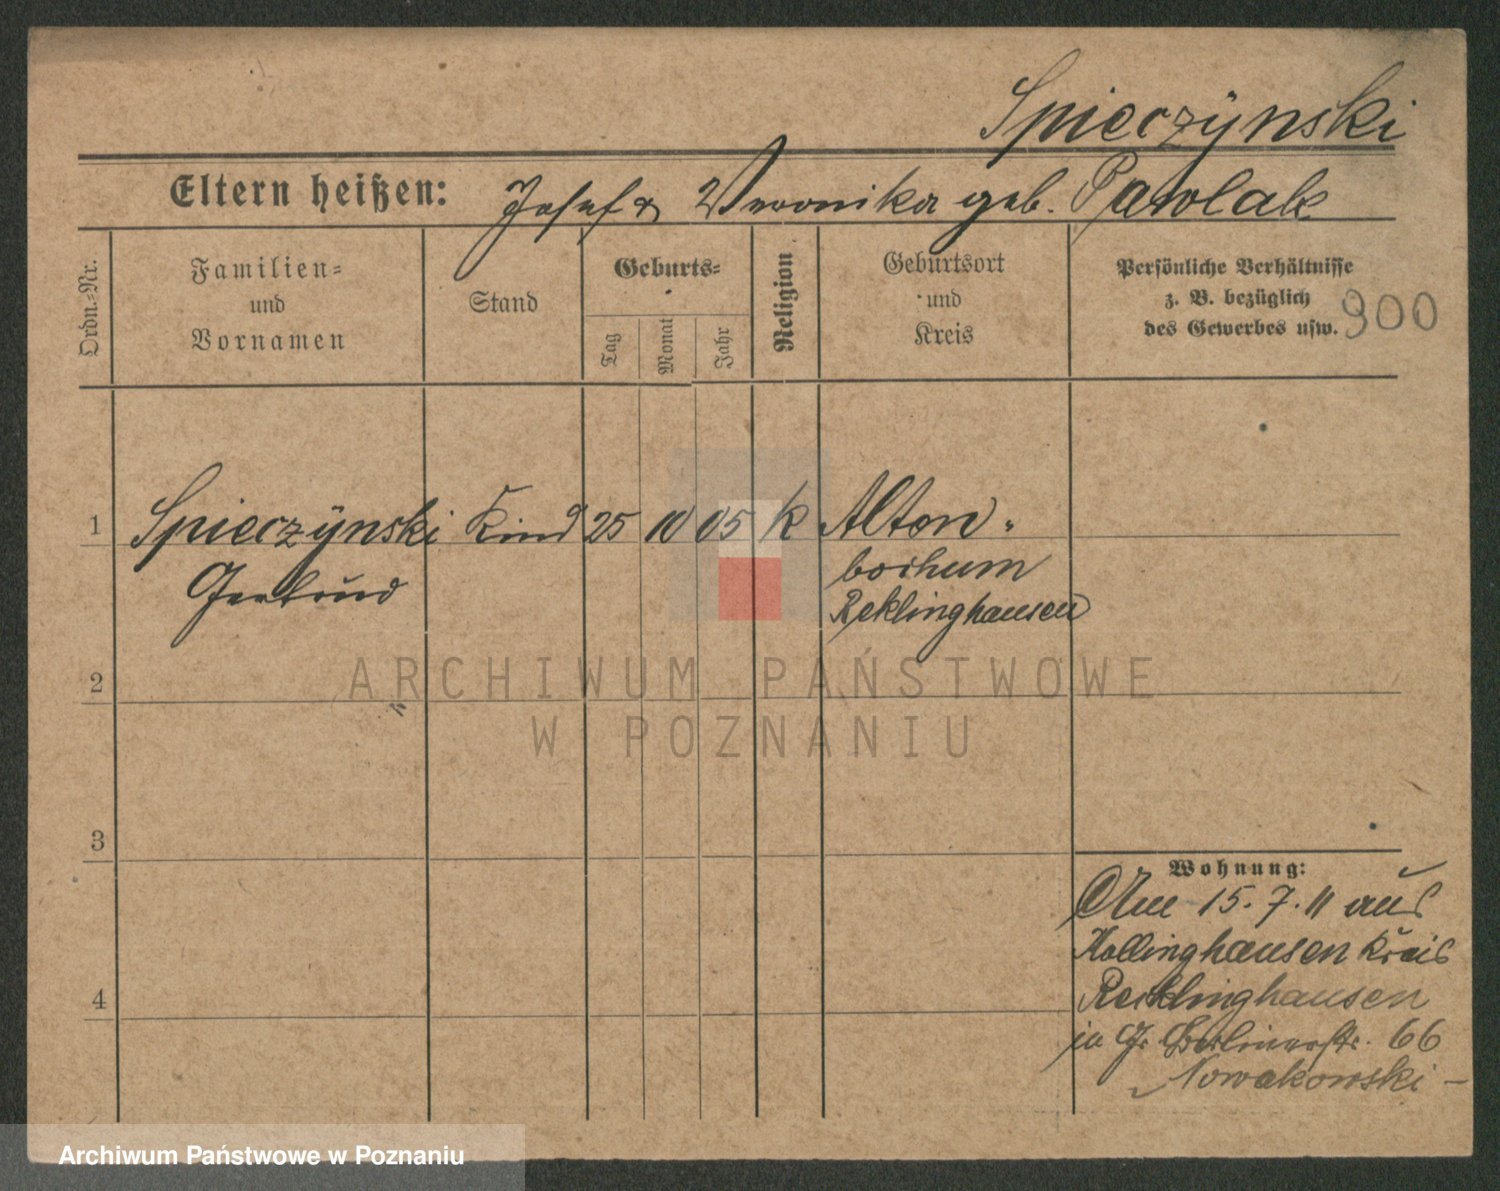 Spieczÿnski
Eltern heißen: Josef & Veronika geb. Pawlak
Ordn.-Nr.
Familien-
und
Vornamen
Stand
Geburts-
Tag
Monat
Jahr
Religion
Geburtsort
und
Kreis
Persönliche Verhältnisse
z. B. bezüglich
des Gewerbes usw.
900
1 Spieczÿnski Kind 25 10 05 k Alten-
Gertrud bochum
Reklinghausen
2
3
4
Wohnung:
Am 15.7.11 aus
Kreis
Recklinghausen
Gr. Berlinerstr. 66
Nowakowski -
ARCHIWUM PAŃSTWOWE
W POZNANIU
Archiwum Państwowe w Poznaniu